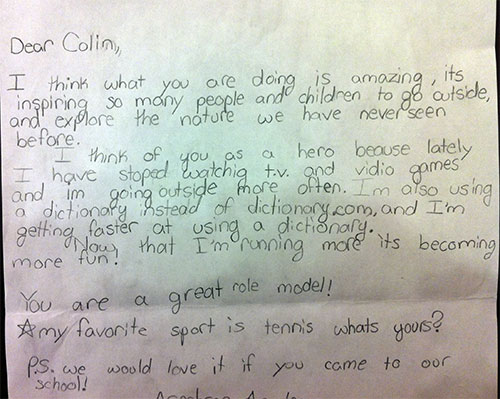 Dear Colin,,
I think what you are doing is amazing, its
inspiring so many people and children to go outside,
and explore the nature we have never seen
before.
I think of you as a hero beause lately
I have stoped watchig t.v. and vidio games
and im going outside more often. I'm also using
a dictionary instead of dictionary.com, and I'm
getting faster at using a dictionary.
Now, that I'm running more its becoming
more fun!
You are a great role model!
☆my favorite sport is tennis whats yours?
P.S. we would love it if you came to our
school!